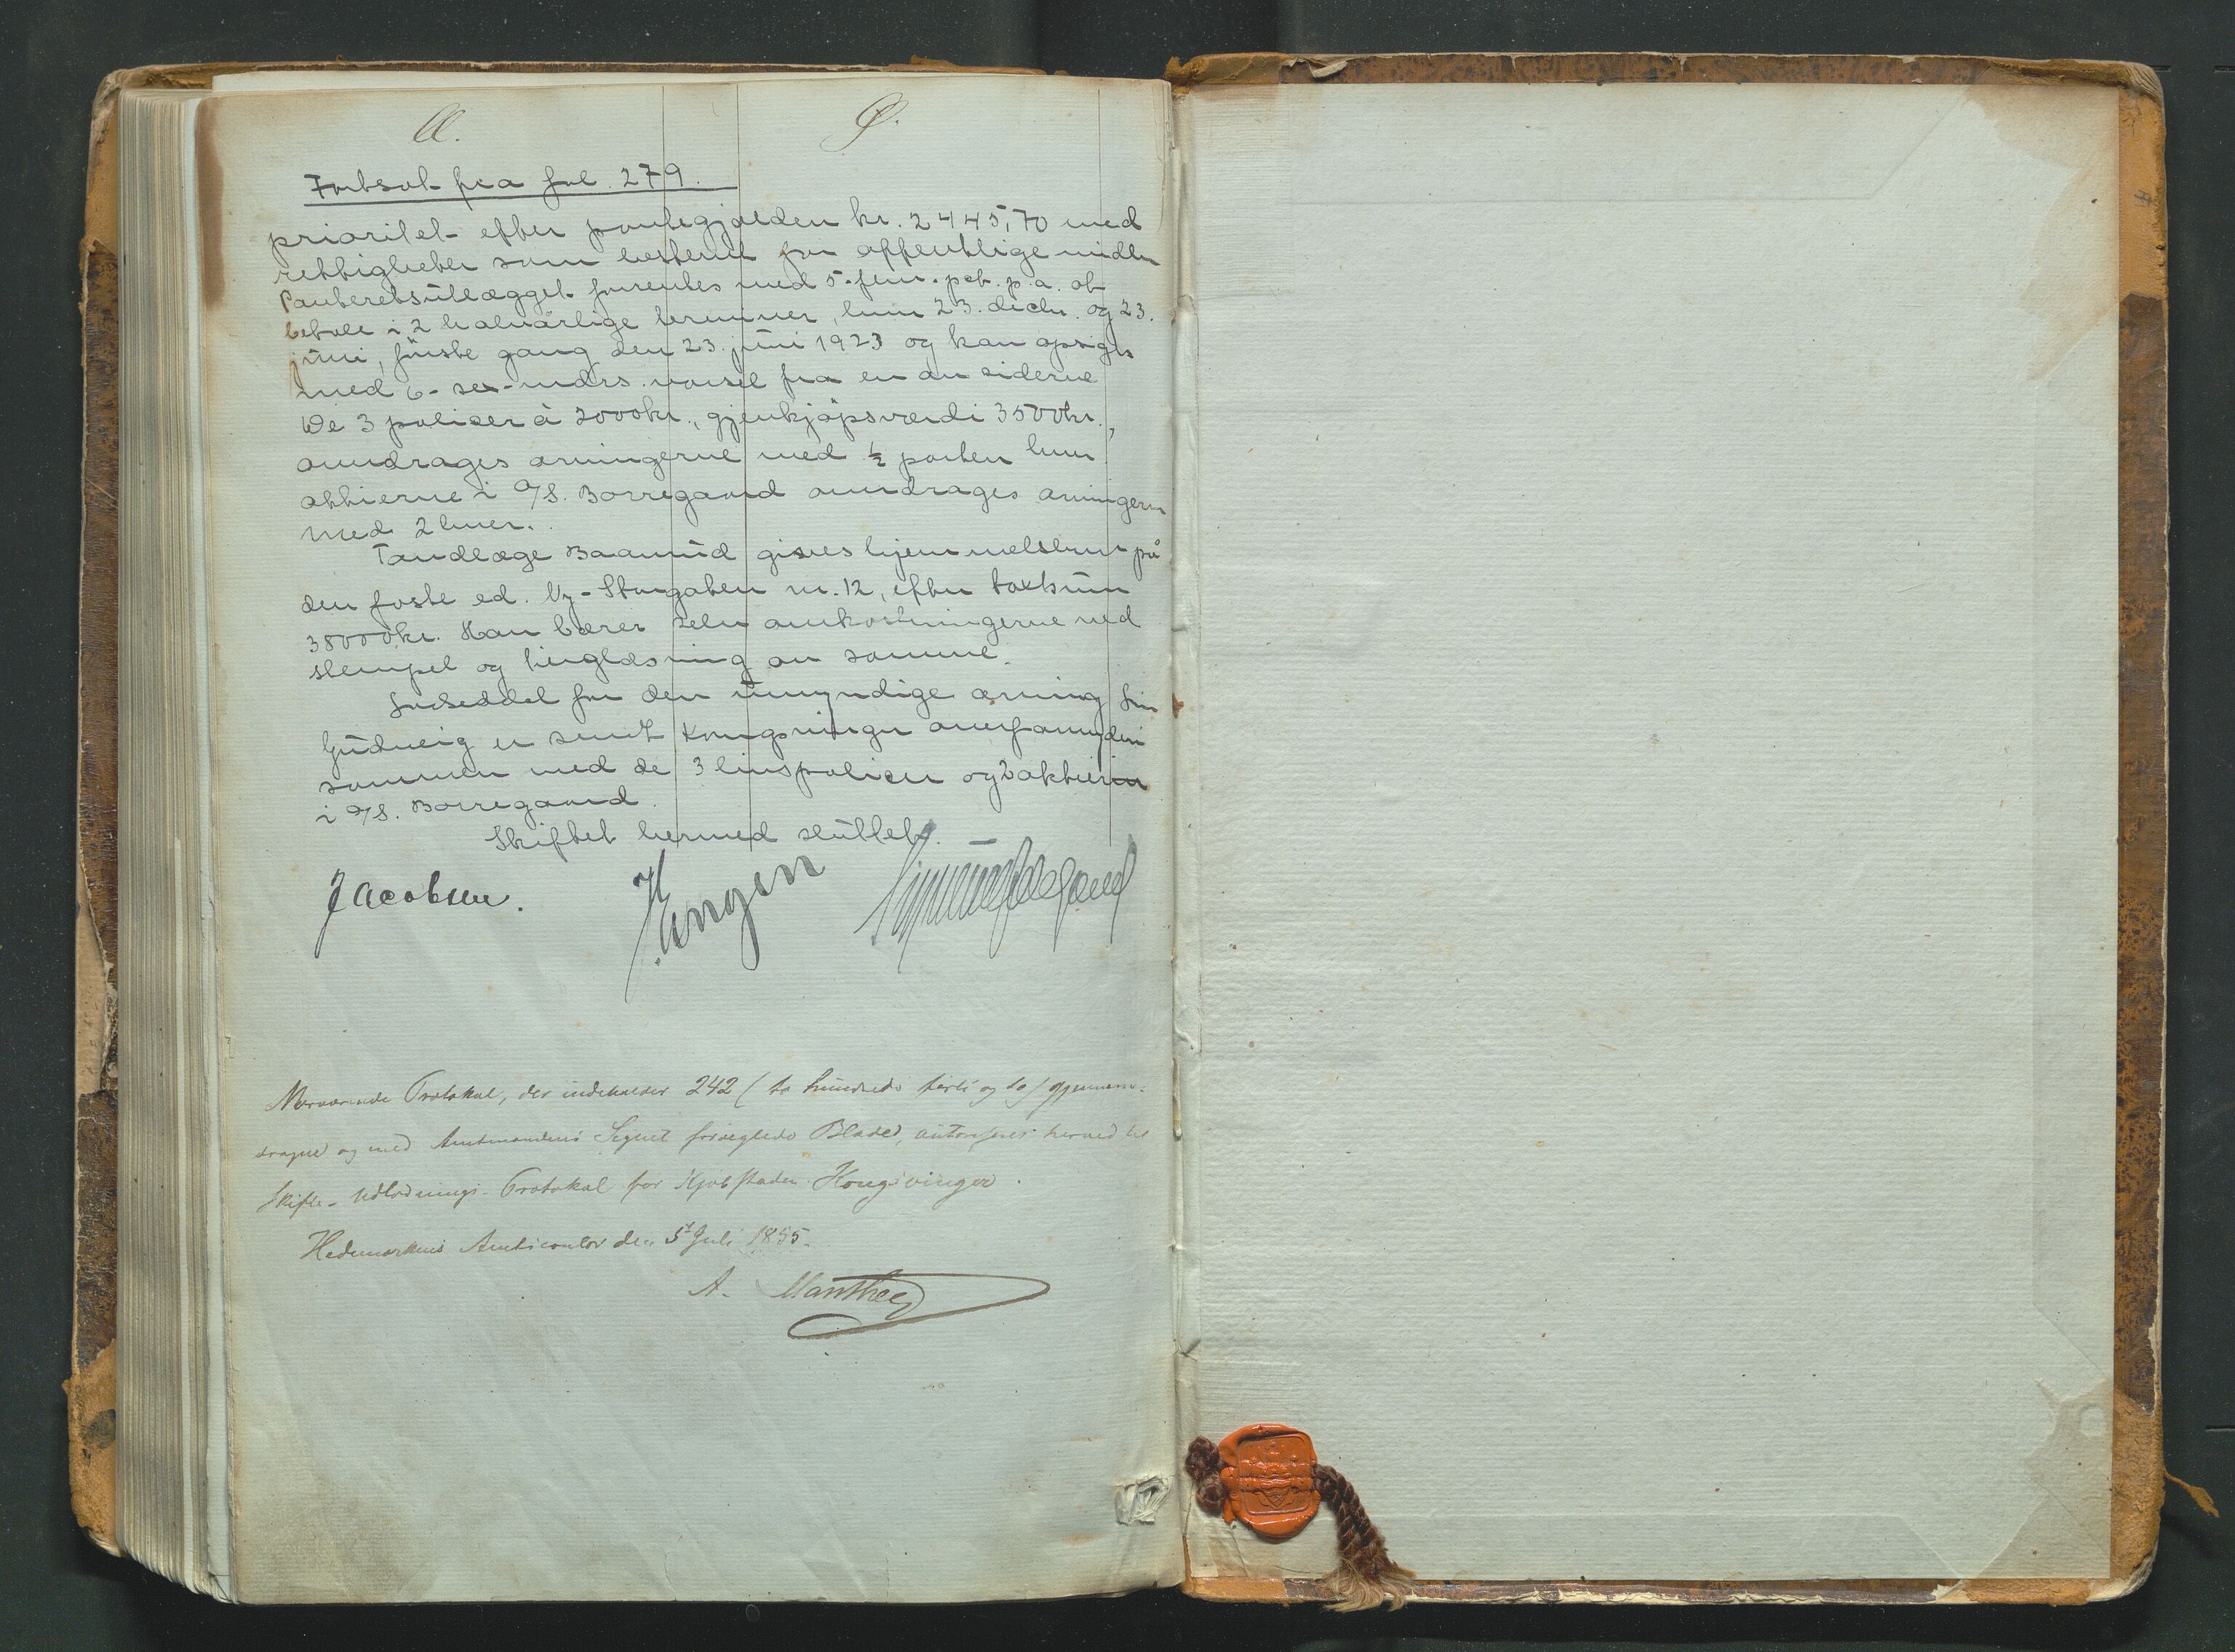 Æ. Ø.
Fortsat fra fol. 279.
prioritet efter pantegjælden kr. 2445,70 med
rettigheter som besternt for offentlige midler
Panteretsutlægget forrentes med 5-fem-pct. p.a. at
betale i 2 halvårlige terminer, hver 23. decbr. og 23.
juni, første gang den 23. juni 1923 og kan opsiges
med 6-sex-mdrs. varsel fra en av siderne
De 3 policer à 2000 kr., gjenkjøpsværdi 3500 kr.,
overdrages arvingerne med ½ parten hver
aktierne i A/S. Borregaard overdrages arvingerne
med 2 hver.
Tandlæge Baamud gives hjemmelsbrev på
den faste ed. Ny-Storgaten nr. 12, efter takstsum
38000 kr. Han bærer selv omkostningerne ved
stempel og tinglæsning av samme.
Lodseddel for den umyndige arving
Gudveig er sendt Kongsvinger overformynderi
sammen med de 3 livspolicer og 2 aktier
i A/S. Borregaard.
Skiftet hermed sluttet.
Jacobsen.
Nærværende Protokol, der indeholder 242 (to hundrede førti og to) gjennem-
dragne og med Amtmandens Segnet forseglede Blade, autoriseres herved til
Skifte-Udlodnings-Protokol for Kjøbstaden Kongsvinger.
Hedemarkens Amtscontor den 5t Juli 1855.
A. Manthey